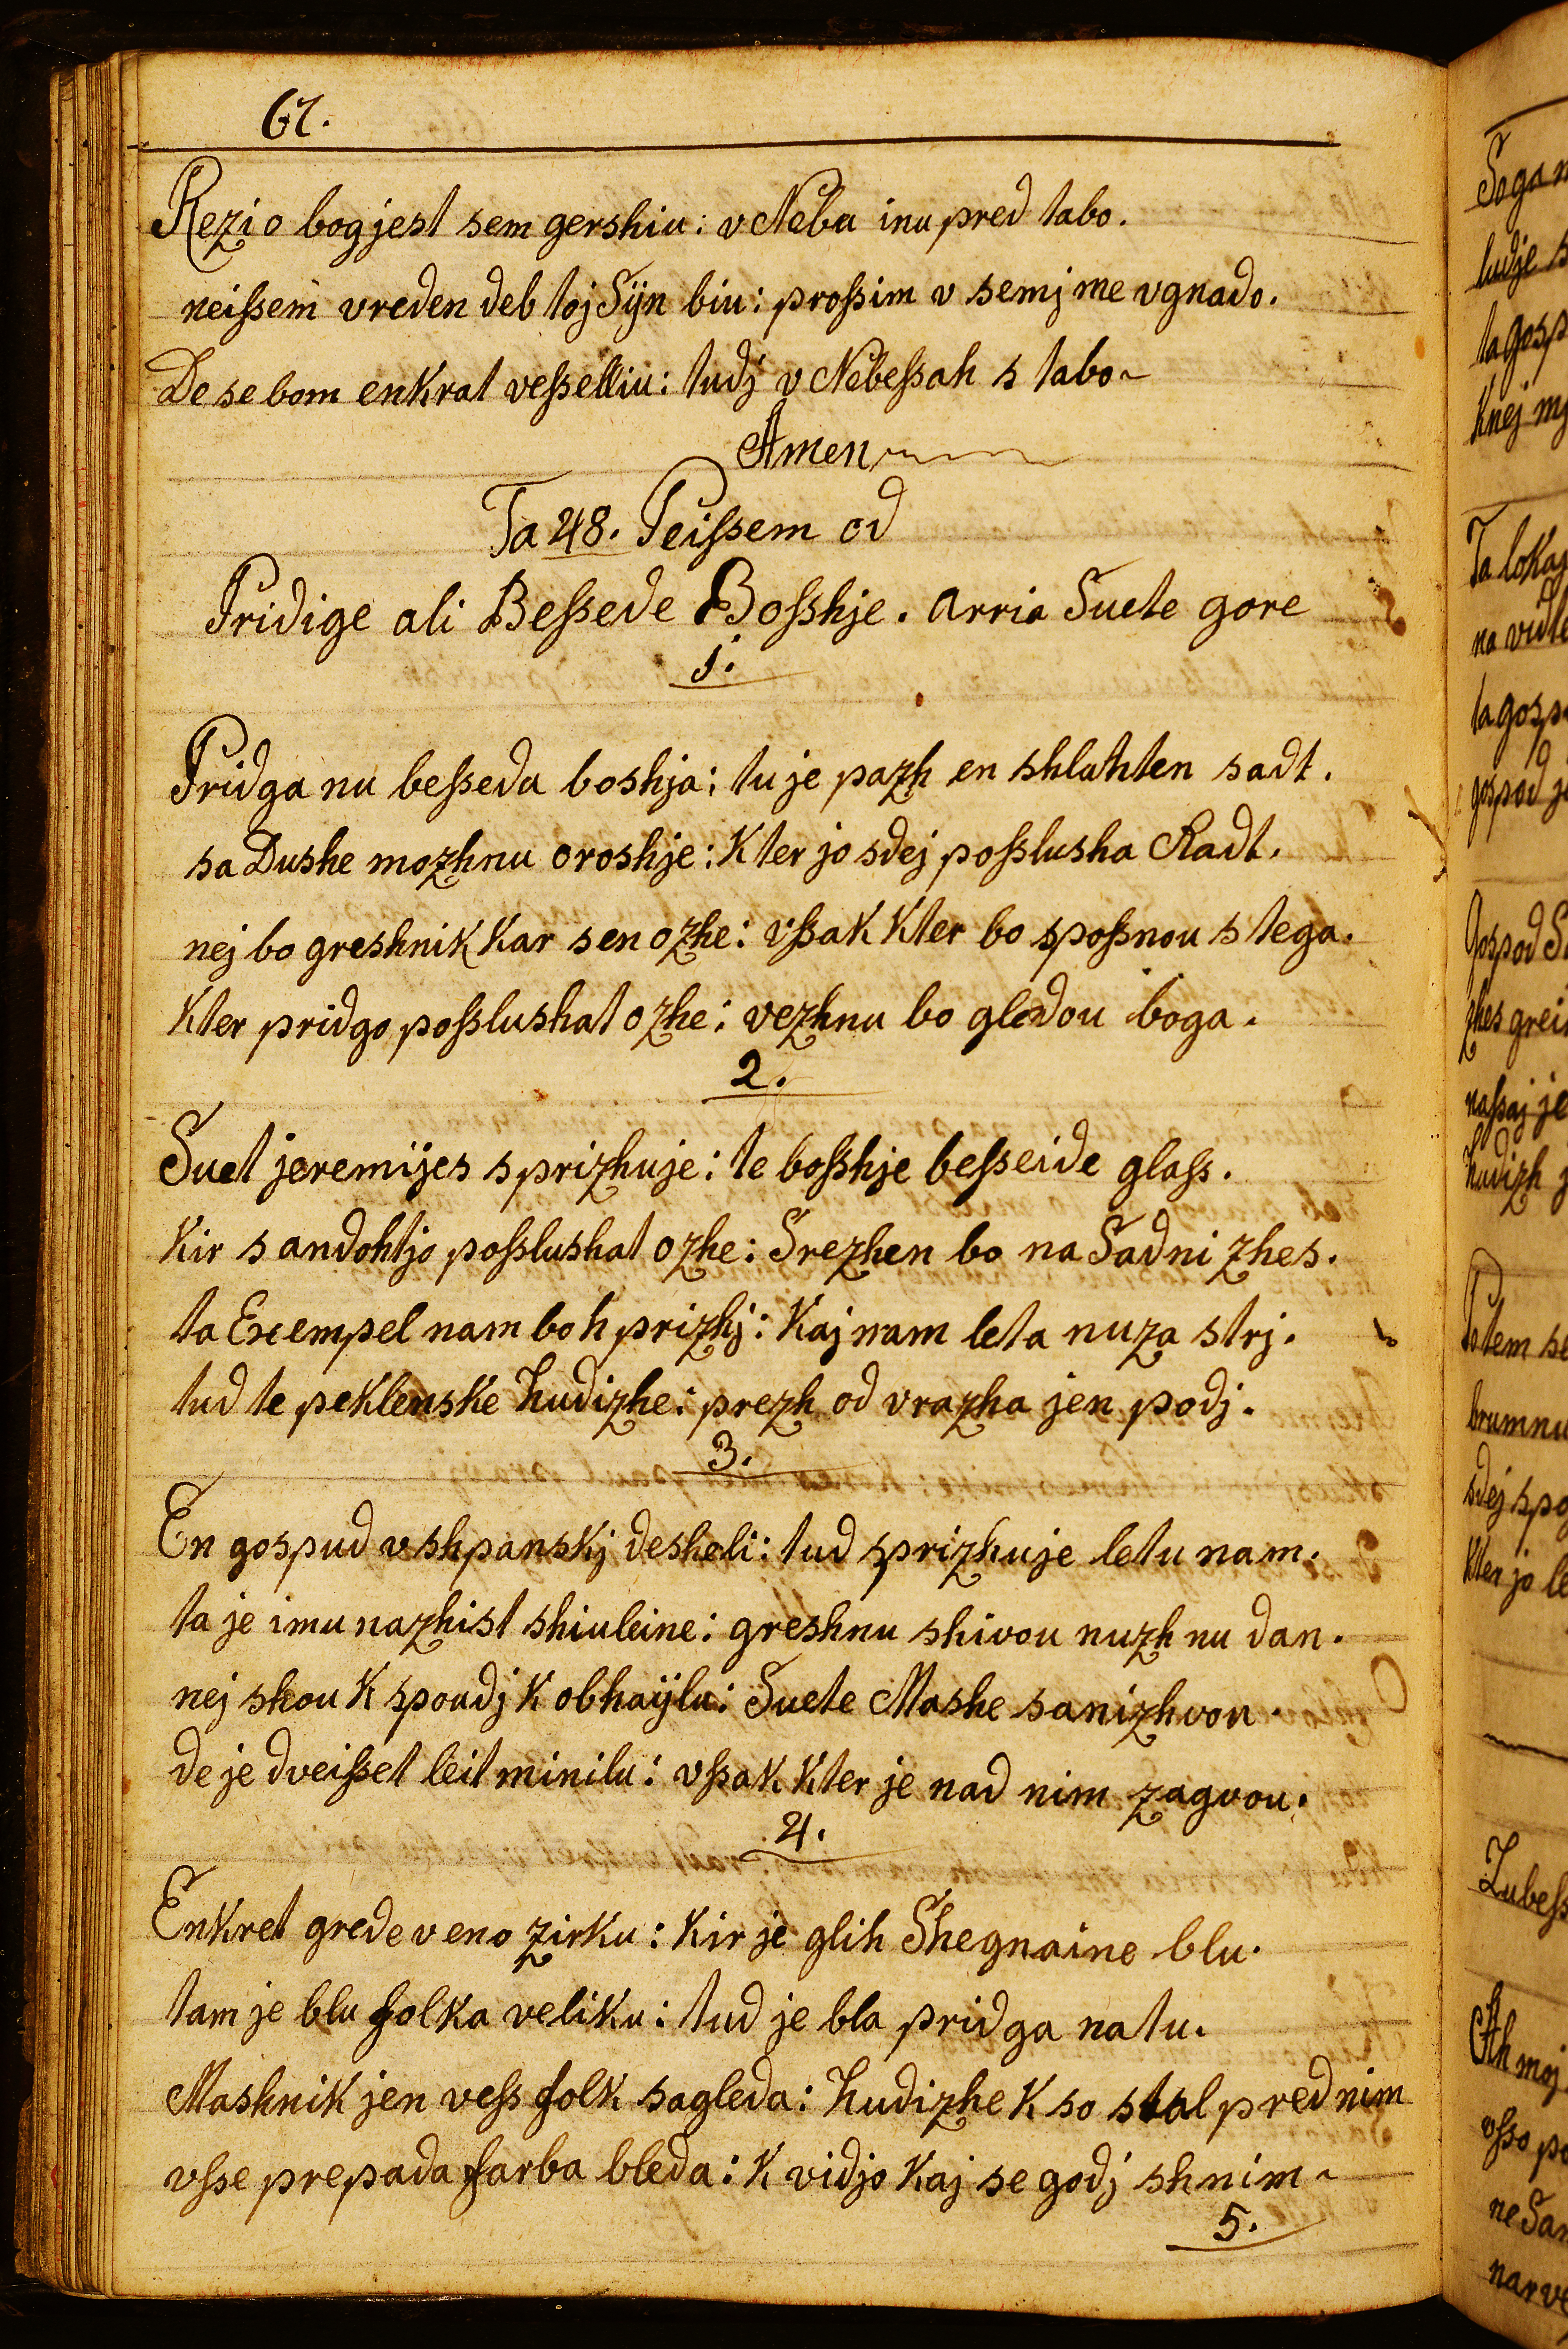 67.
Rezi o bog jest sem gershiu: v Nebu inu pred tabo.
neissem vreden deb toj Sÿn biu: prossim v semj me vgnado.
De se bom enkrat vesselliu: tudj v Nebessah s tabo
Amen
Ta 48. Peissem od
Pridige ali Bessede Bosshje. arria Suete gore
1.
Pridga nu besseda boshja: tu je pazh en shlahten sadt.
sa Dushe mozhnu oroshje: Kter jo sdej posslusha Radt.
nej bo greshnik kar sen ozhe: vssak kter bo spossnou s tega.
Kter pridgo posslushat ozhe: vezhnu bo gledou boga.
2.
Suet jeremijes sprizhuje: te bosshje besseide glass.
Kir s andohtjo posslushat ozhe: Srezhen bo na Sadni zhes.
ta Exempel nam bo h prizhj: Kaj nam leta nuza strj.
tud te peklenske hudizhe: prezh od vrazha jen podj.
3.
En gospud v shpanskj desheli: tud sprizhuje letu nam.
ta je imu nazhist shiuleine: greshnu shivou nuzh nu dan.
nej shou k spoudj k obhaÿlu: Suete Mashe sanizh vou.
de je dveisset leit minilu: vssak kter je nad nim zagvou.
4.
Enkret grede v eno zirku: kir je glih Shegnaine blu.
tam je blu folka veliku: tud je bla pridga na tu.
Mashnik jen vess folk sagleda: hudizhe k so stal pred nim
vsse prepada farba bleda: k vidjo kaj se godj shnim
5.